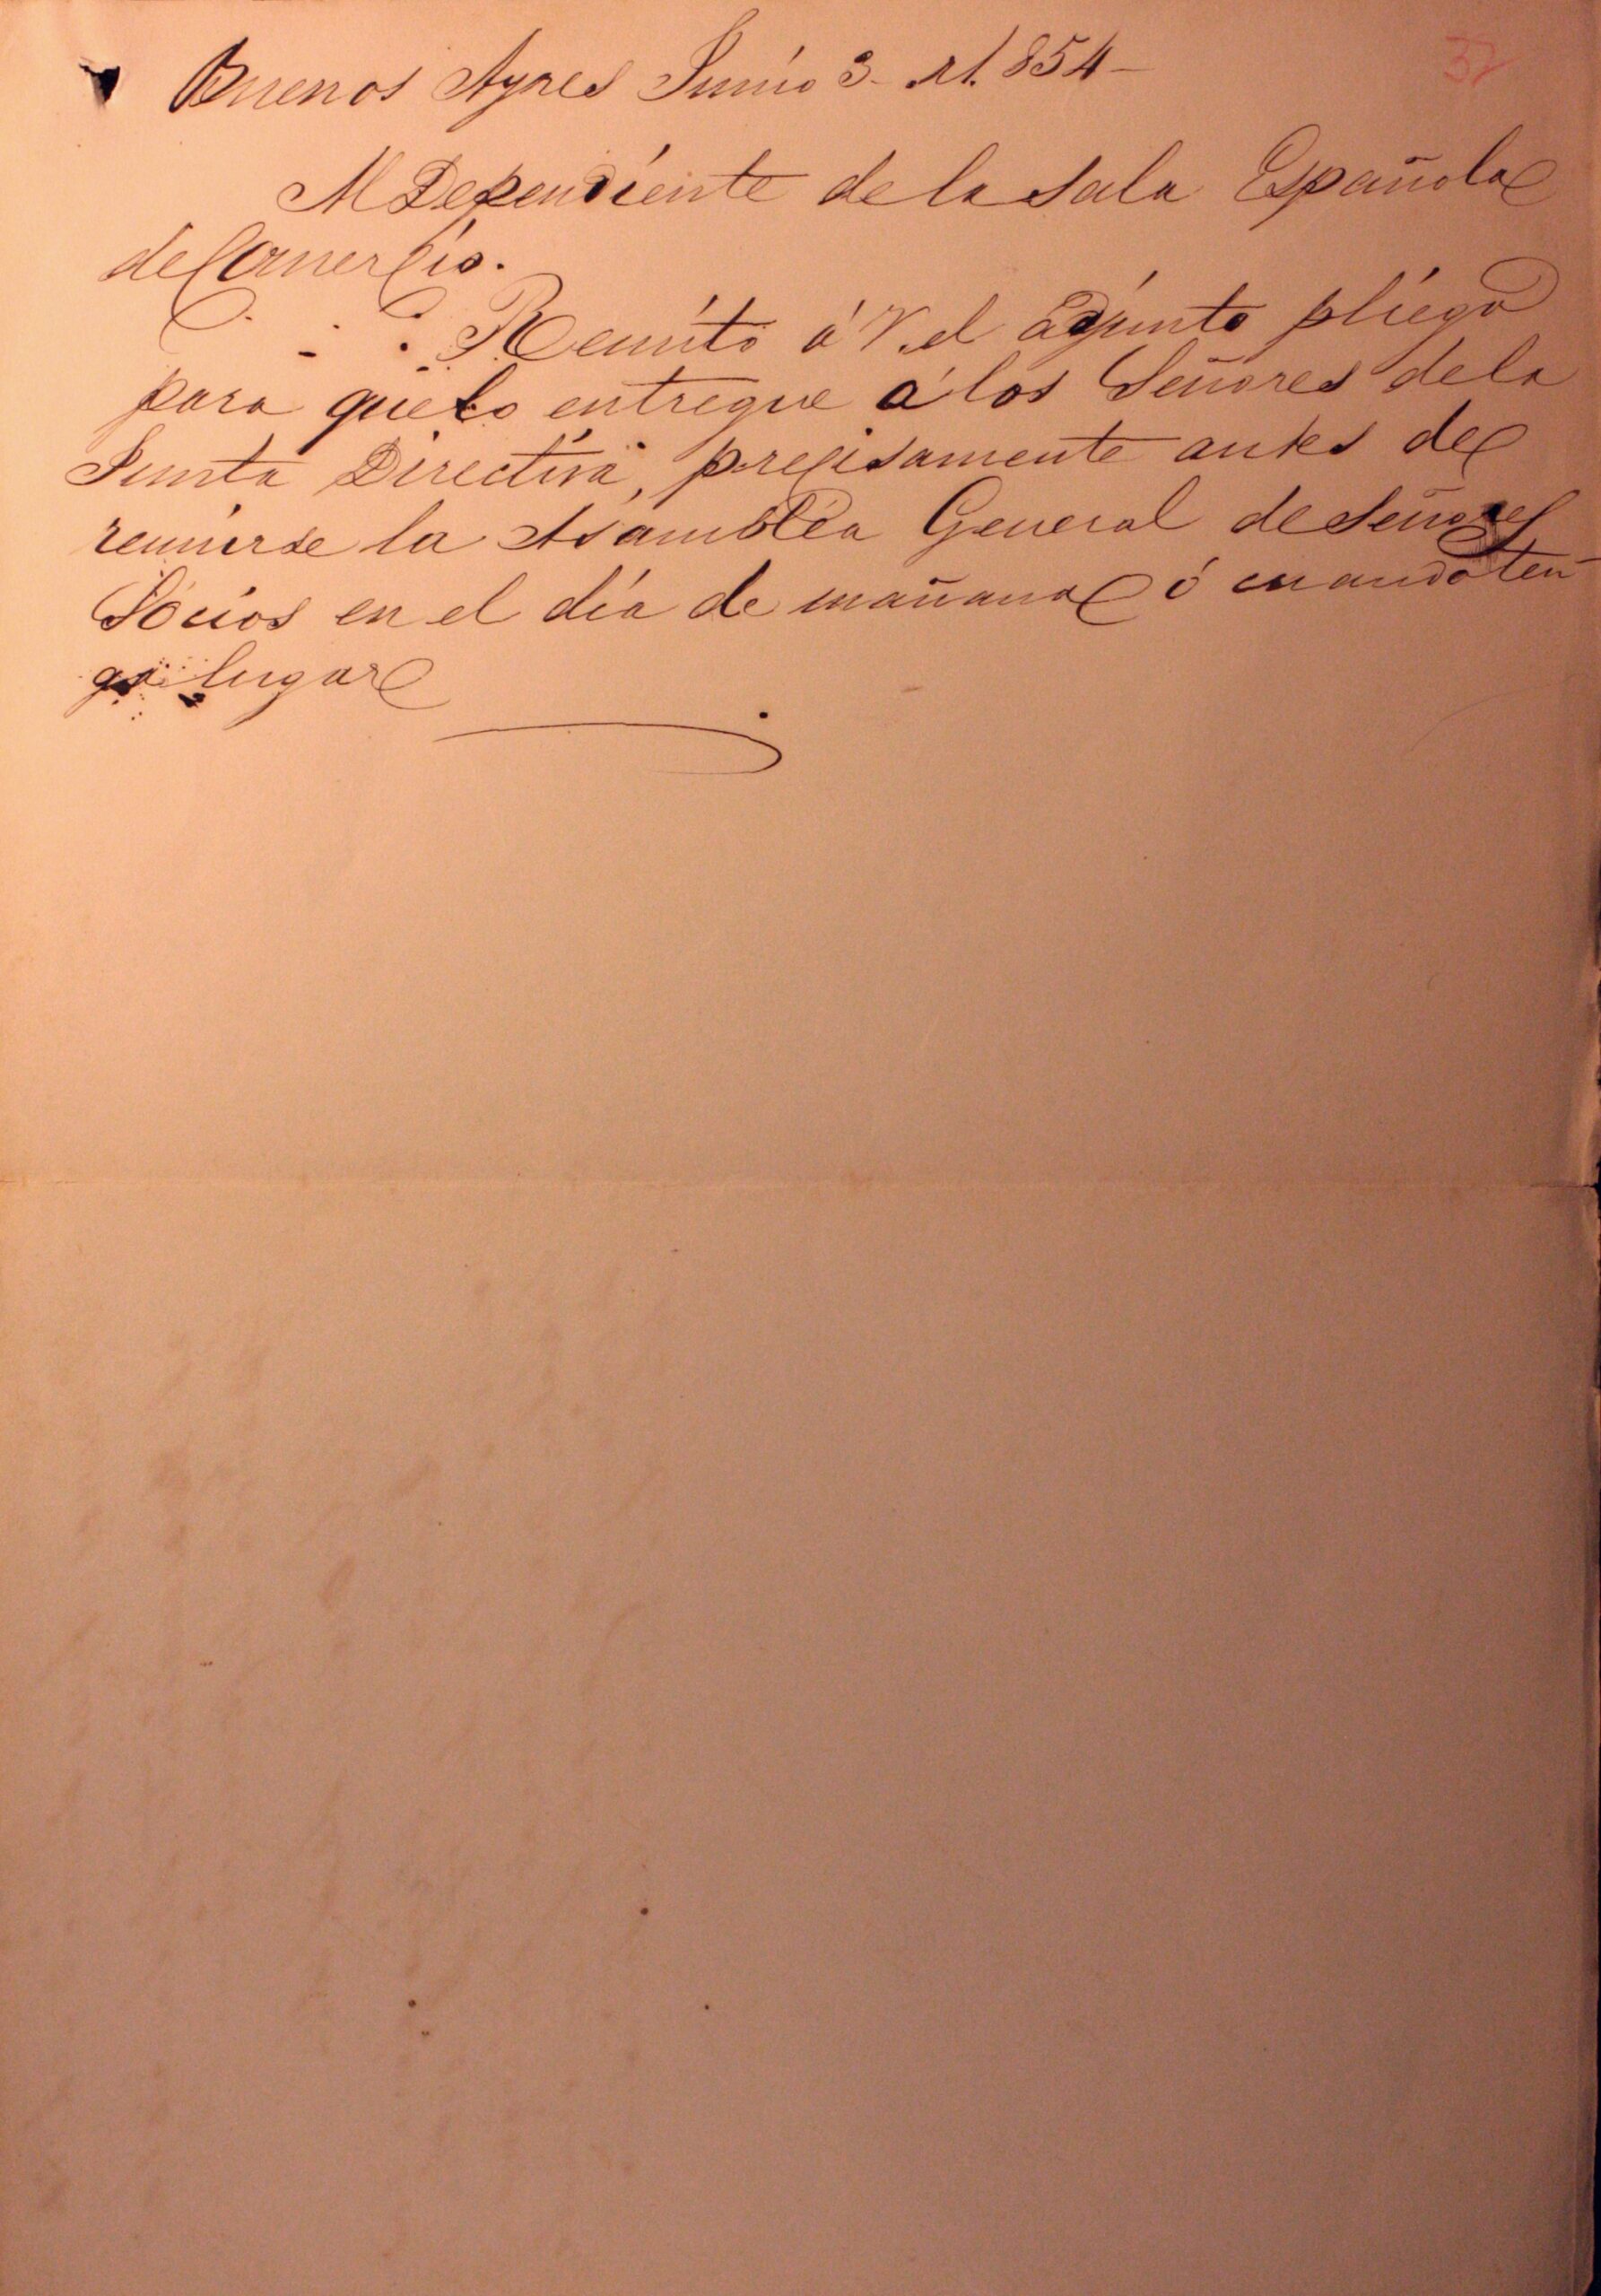 32
Buenos Ayres Junio 3 - de 1.854 -
Al Dependiente de la Sala Española
de Comercio.
Remito á V. el adjunto pliego
para que lo entregue á los Señores de la
Junta Directiva, precisamente antes de
reunirse la Asambléa General de Señores
Sócios en el día de mañana ó cuando ten-
ga lugar